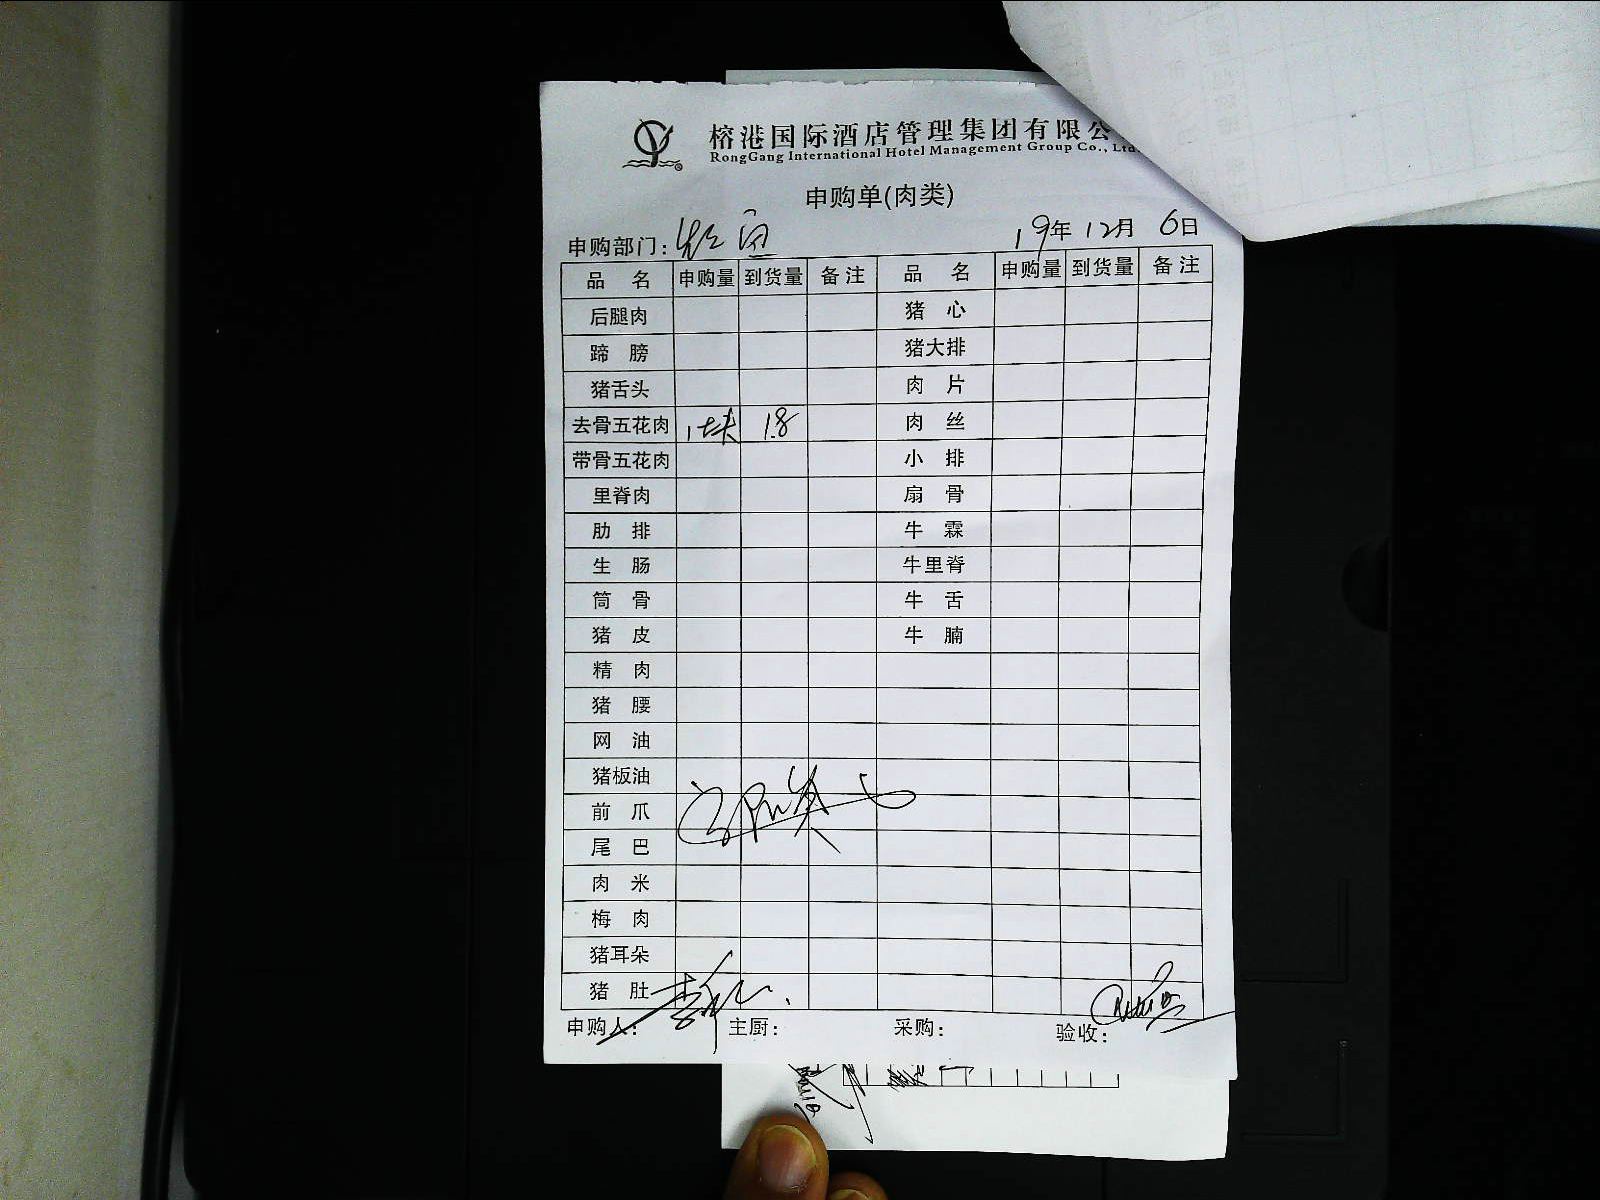 榕港国际酒店管理集团有限公
RongGang International Hotel Management Group Co., Ltd.
申购单(肉类)
申购部门: 19年12月6日
品名 申购量 到货量 备注 品名 申购量 到货量 备注
后腿肉 猪心
蹄膀 猪大排
猪舌头 肉片
去骨五花肉 1块 1.8 肉丝
带骨五花肉 小排
里脊肉 扇骨
肋排 牛霖
生肠 牛里脊
筒骨 牛舌
猪皮 牛腩
精肉
猪腰
网油
猪板油
前爪
尾巴
肉米
梅肉
猪耳朵
猪肚
申购人: 主厨: 采购: 验收: